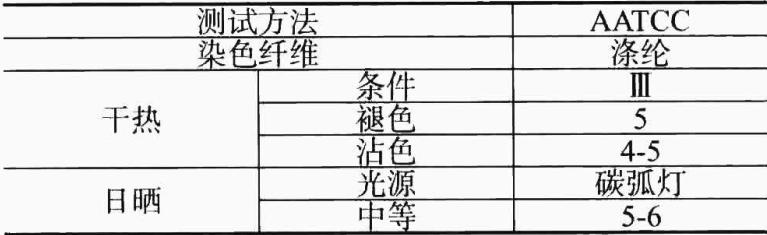 测试方法 AATCC
染色纤维 涤纶
干热 条件 Ⅲ
褪色 5
沾色 4-5
日晒 光源 碳弧灯
中等 5-6